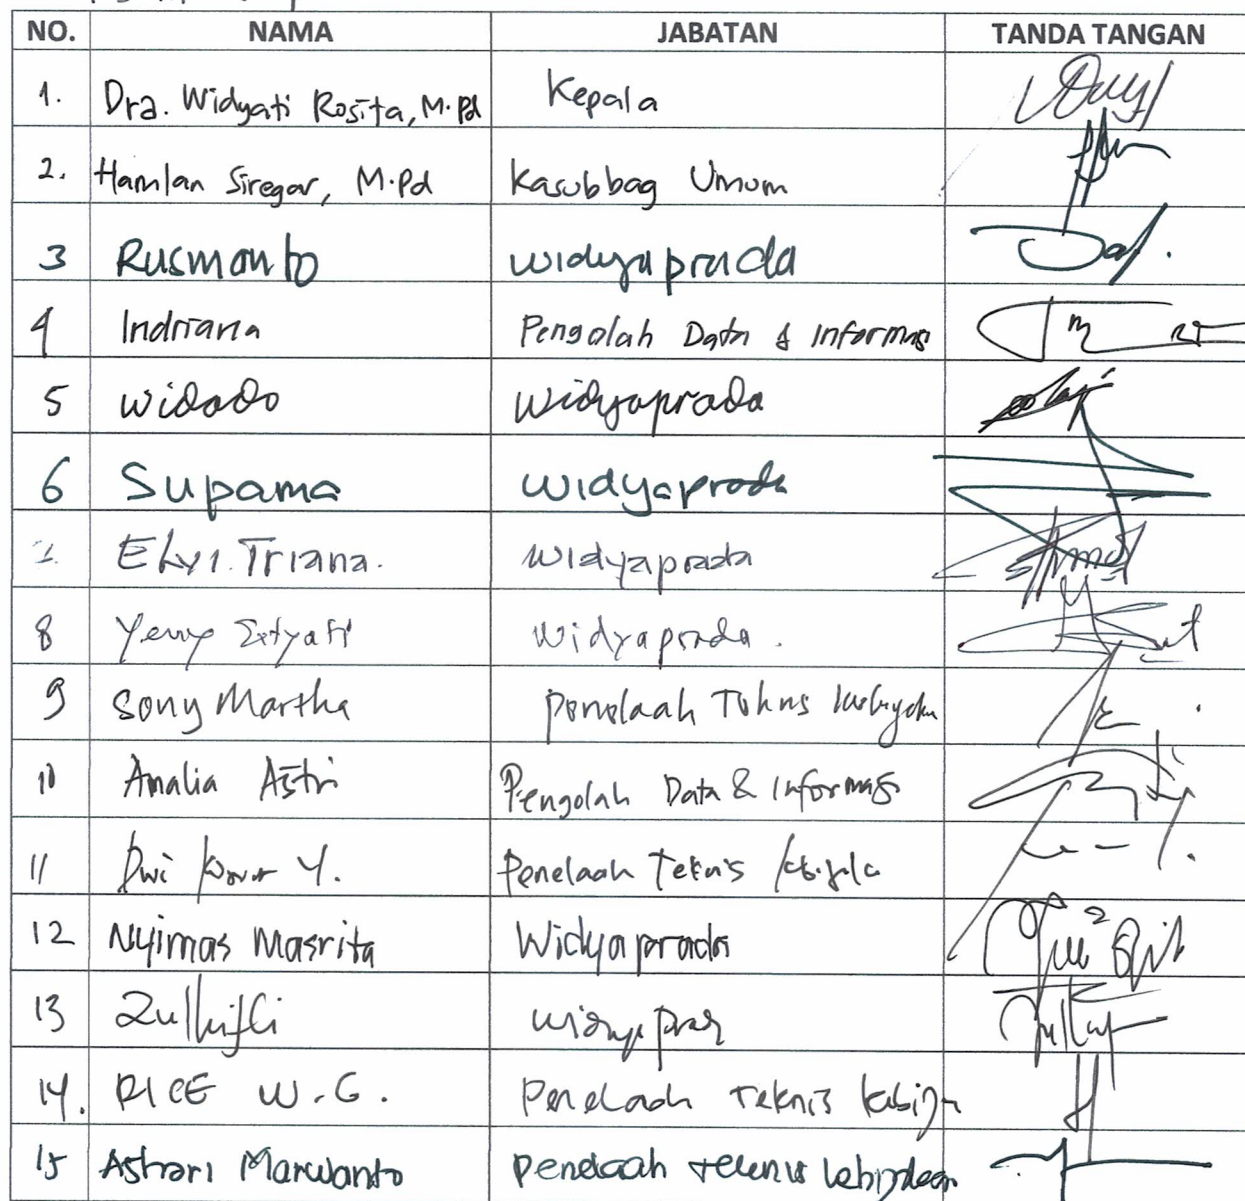 NO. NAMA JABATAN TANDA TANGAN
1. Dra. Widyati Rosita, M.Pd Kepala
2. Hamlan Siregar, M.Pd Kasubbag Umum
3 Rusmanto widyaprada
4 Indriana Pengolah Data & Informasi
5 widodo Widyaprada
6 Suparna widyaprada
7. Elvi. Triana. widyaprada
8 Yenny widyaprada.
9 Sony Martha Penelaah
10 Amalia Astri Pengolah Data & Informasi
11 Dwi Y. Penelaah Teknis
12 Nyimas Masrita Widyaprada
13 Zulkifli
14. RICE W.G. Penelaah Teknis
15 Ashari Marwanto Penelaah teknis kebijakan